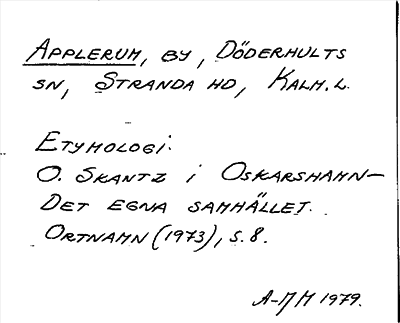 APPLERUM, BY, DÖDERHULTS
SN, STRANDA HD, KALM. L.
ETYMOLOGI:
O. SKANTZ i OSKARSHAMN-
DET EGNA SAMHÄLLET.
ORTNAMN (1973), S. 8.
A-MM 1979.